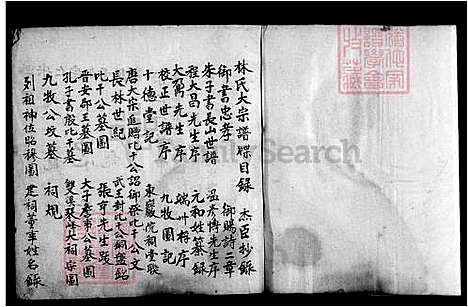 林氏大宗譜牒目錄 杰臣抄錄
御書忠孝 御賜詩二章
朱子書長山世譜 溫彥博先生序
程大昌先生序 元和姓纂錄
大鼐先生序 端州將序
校正世譜序 九牧圖記
十德堂記 東巖院相堂聯
唐太宗追贈比干公詔御祭比干公文
長林世紀 武王封比干公銅盤銘
比干公墓圖 張齊先生跋
晉安郡王墓圖 大子唐帝公墓圖
孔子書殷比干墓 雙溪大祠宗圖
九牧公坟墓 祠規
列祖神位昭穆圖 建祠董事姓名錄
FamilySearch